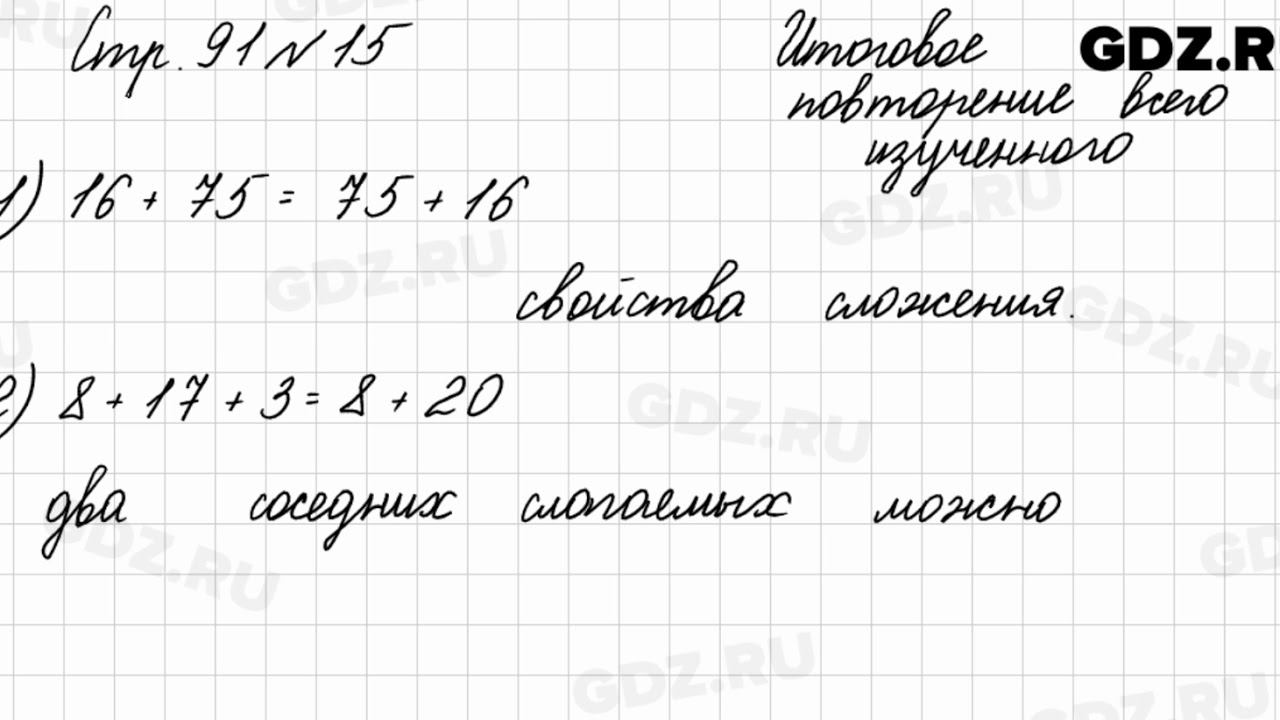 Стр. 91 № 15
Итоговое
GDZ.R
повторение всего
изученного
1) 16 + 75 = 75 + 16
свойства сложения.
2) 8 + 17 + 3 = 8 + 20
два соседних слагаемых можно
GDZ.RU
GDZ.RU
GDZ.RU
GDZ.RU
GDZ.RU
GDZ.RU